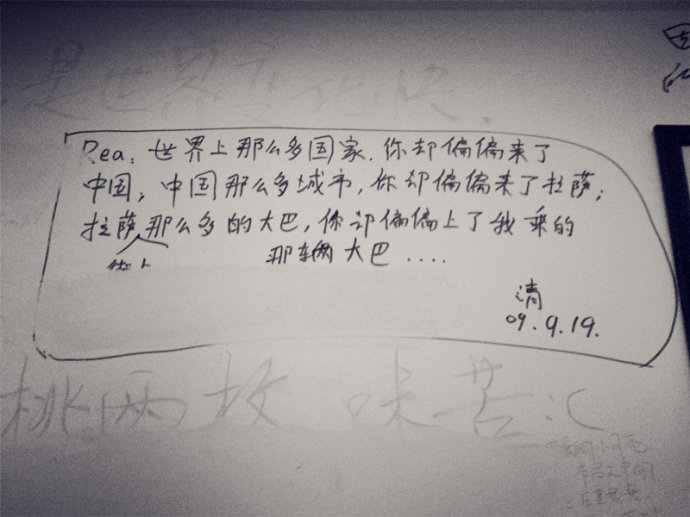 是世界
Rea: 世界上那么多国家.你却偏偏来了
中国; 中国那么多城市,你却偏偏来了拉萨;
拉萨那么多的大巴,你却偏偏上了我乘的
那辆大巴....
清
09.9.19.
桃两枚 味苦:(